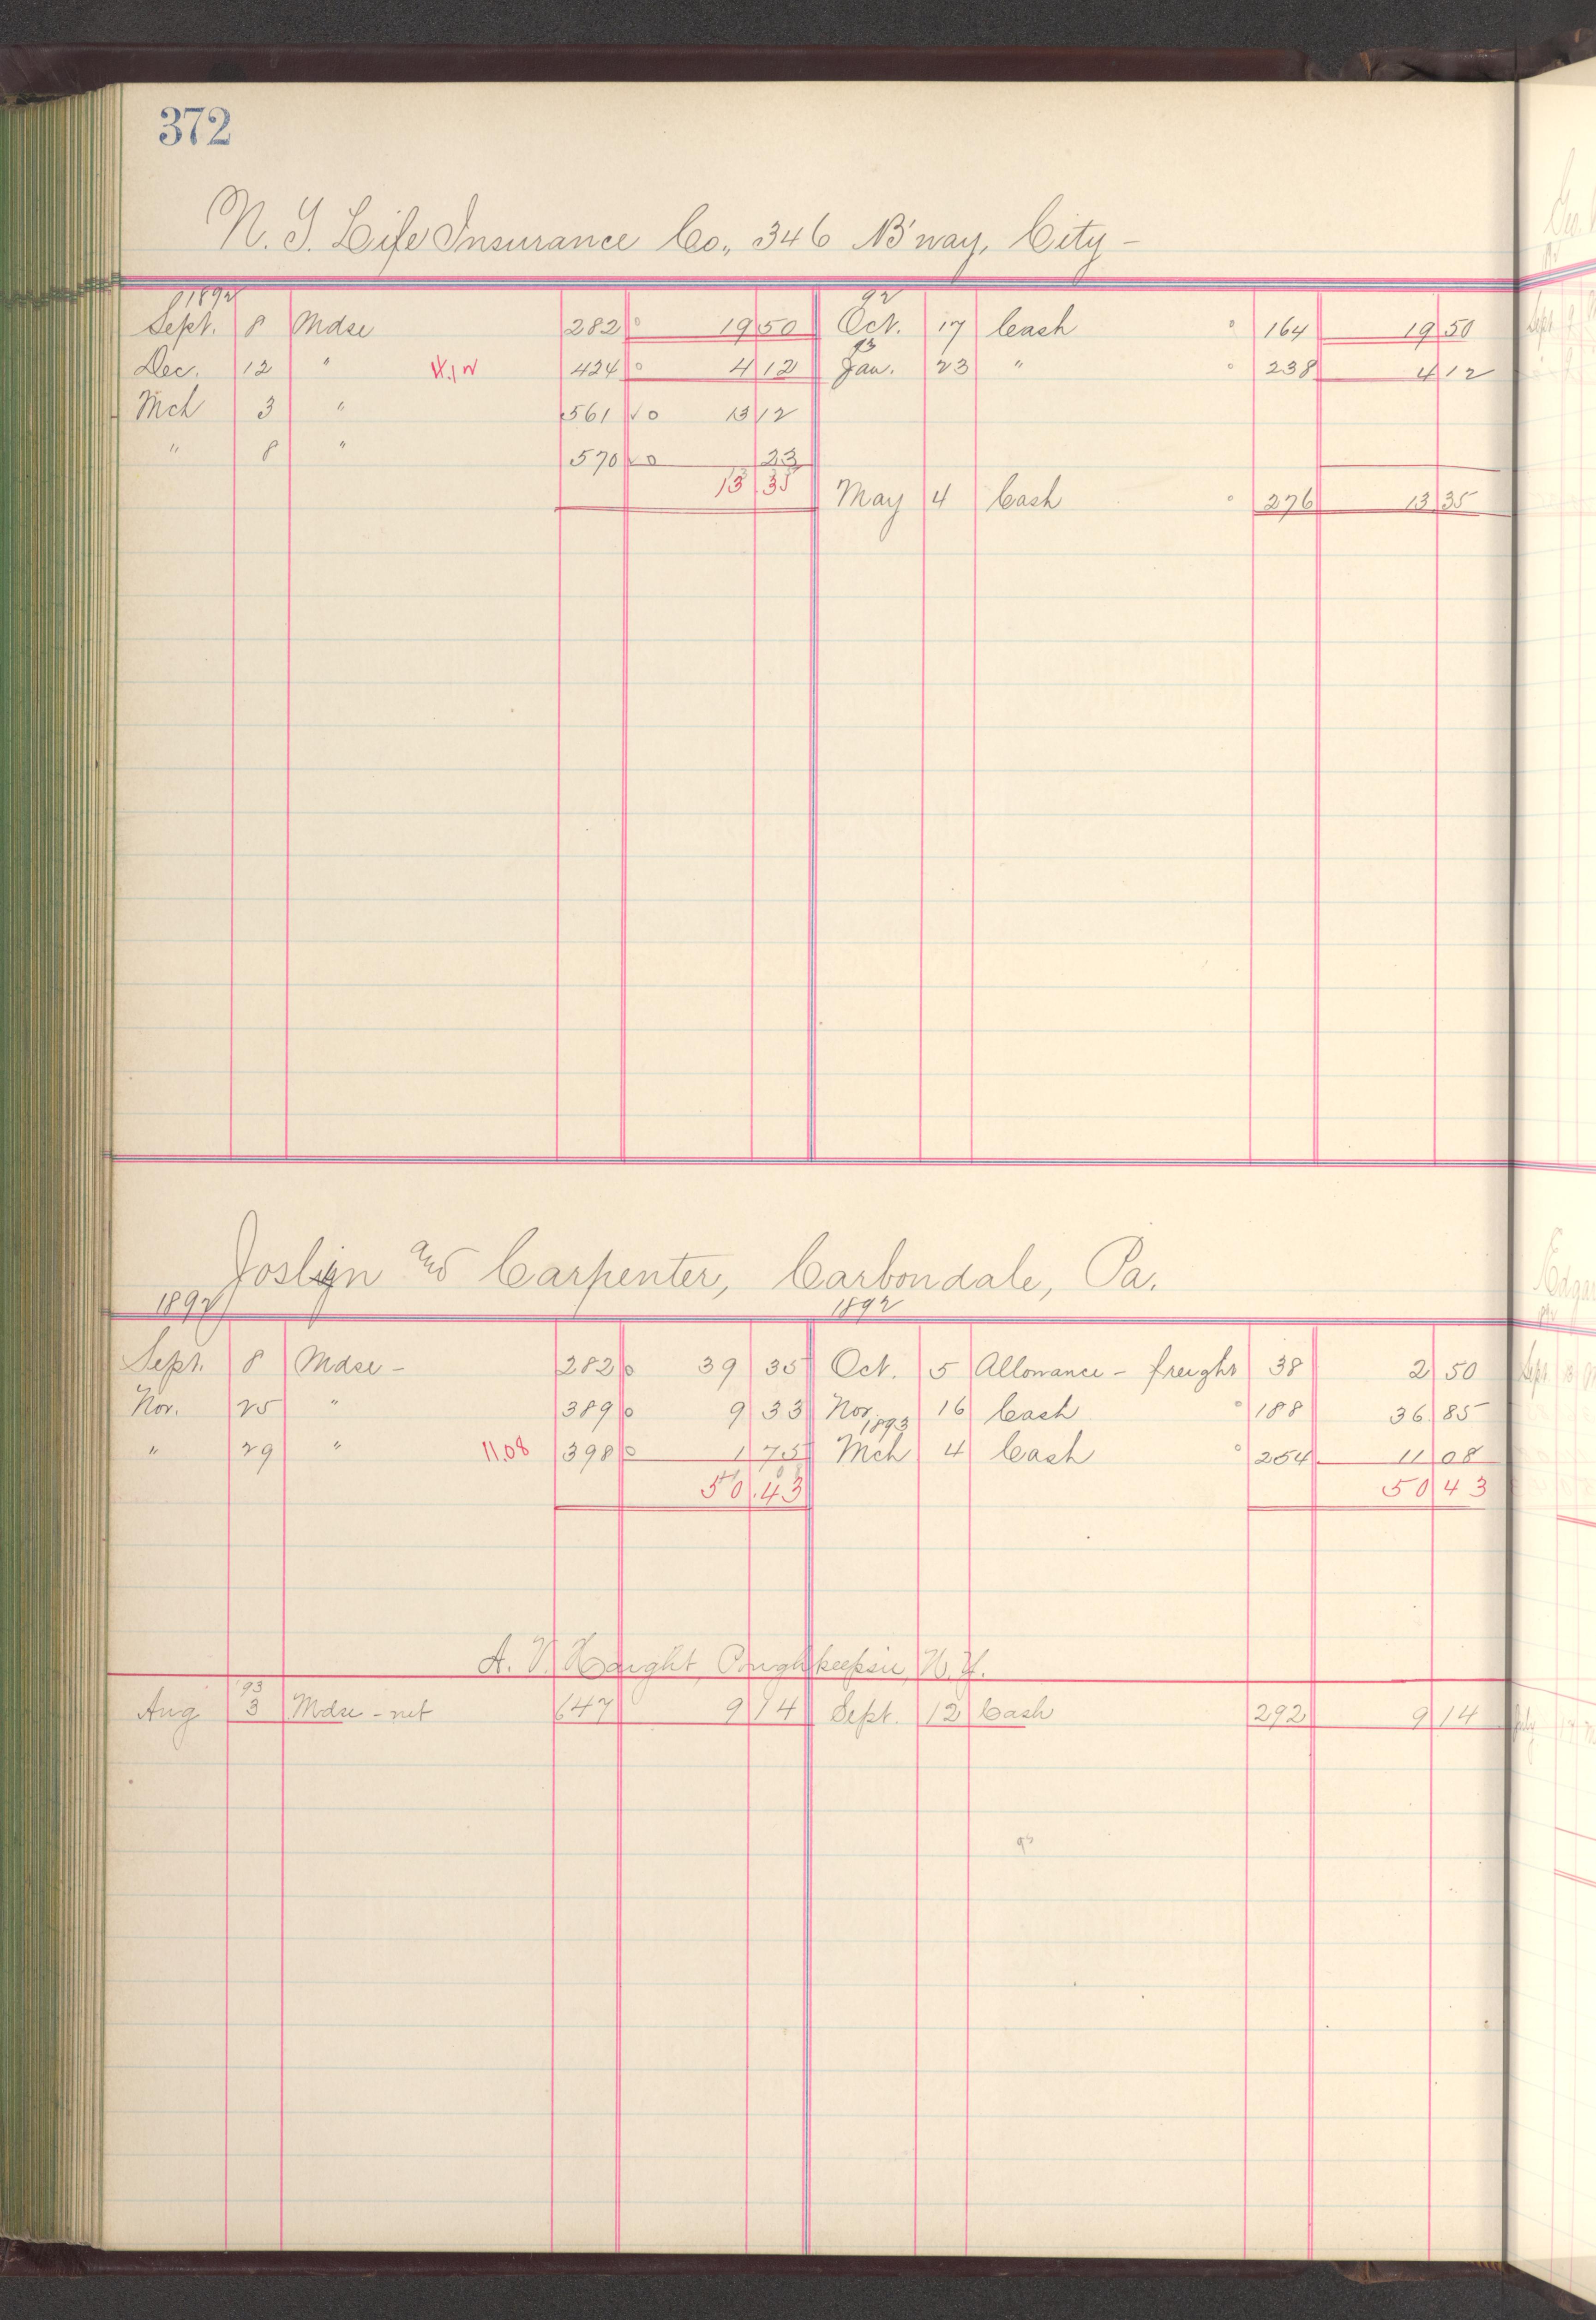 372
N. Y. Life Insurance Co., 346 B'way, City -
1892 92
Sept. 8 Mdse 282 19 50 Oct. 17 Cash 164 19 50
93
Dec. 12 " 4.12 424 4 12 Jan. 23 " 238 4 12
Mch 3 " 561 13 12
" 8 " 570 23
13 35 May 4 Cash 276 13 35
Joslyn and Carpenter, Carbondale, Pa.
1892 1892
Sept. 8 Mdse - 282 39 35 Oct. 5 Allowance - freight 38 2 50
Nov. 25 " 389 9 33 Nov. 16 Cash 188 36 85
1893
" 29 " 11.08 398 1 75 Mch 4 Cash 254 11 08
50.43 50 43
A. V. Haight, Poughkeepsie, N. Y.
93
Aug 3 Mdse - net 647 9 14 Sept. 12 Cash 292 9 14
93